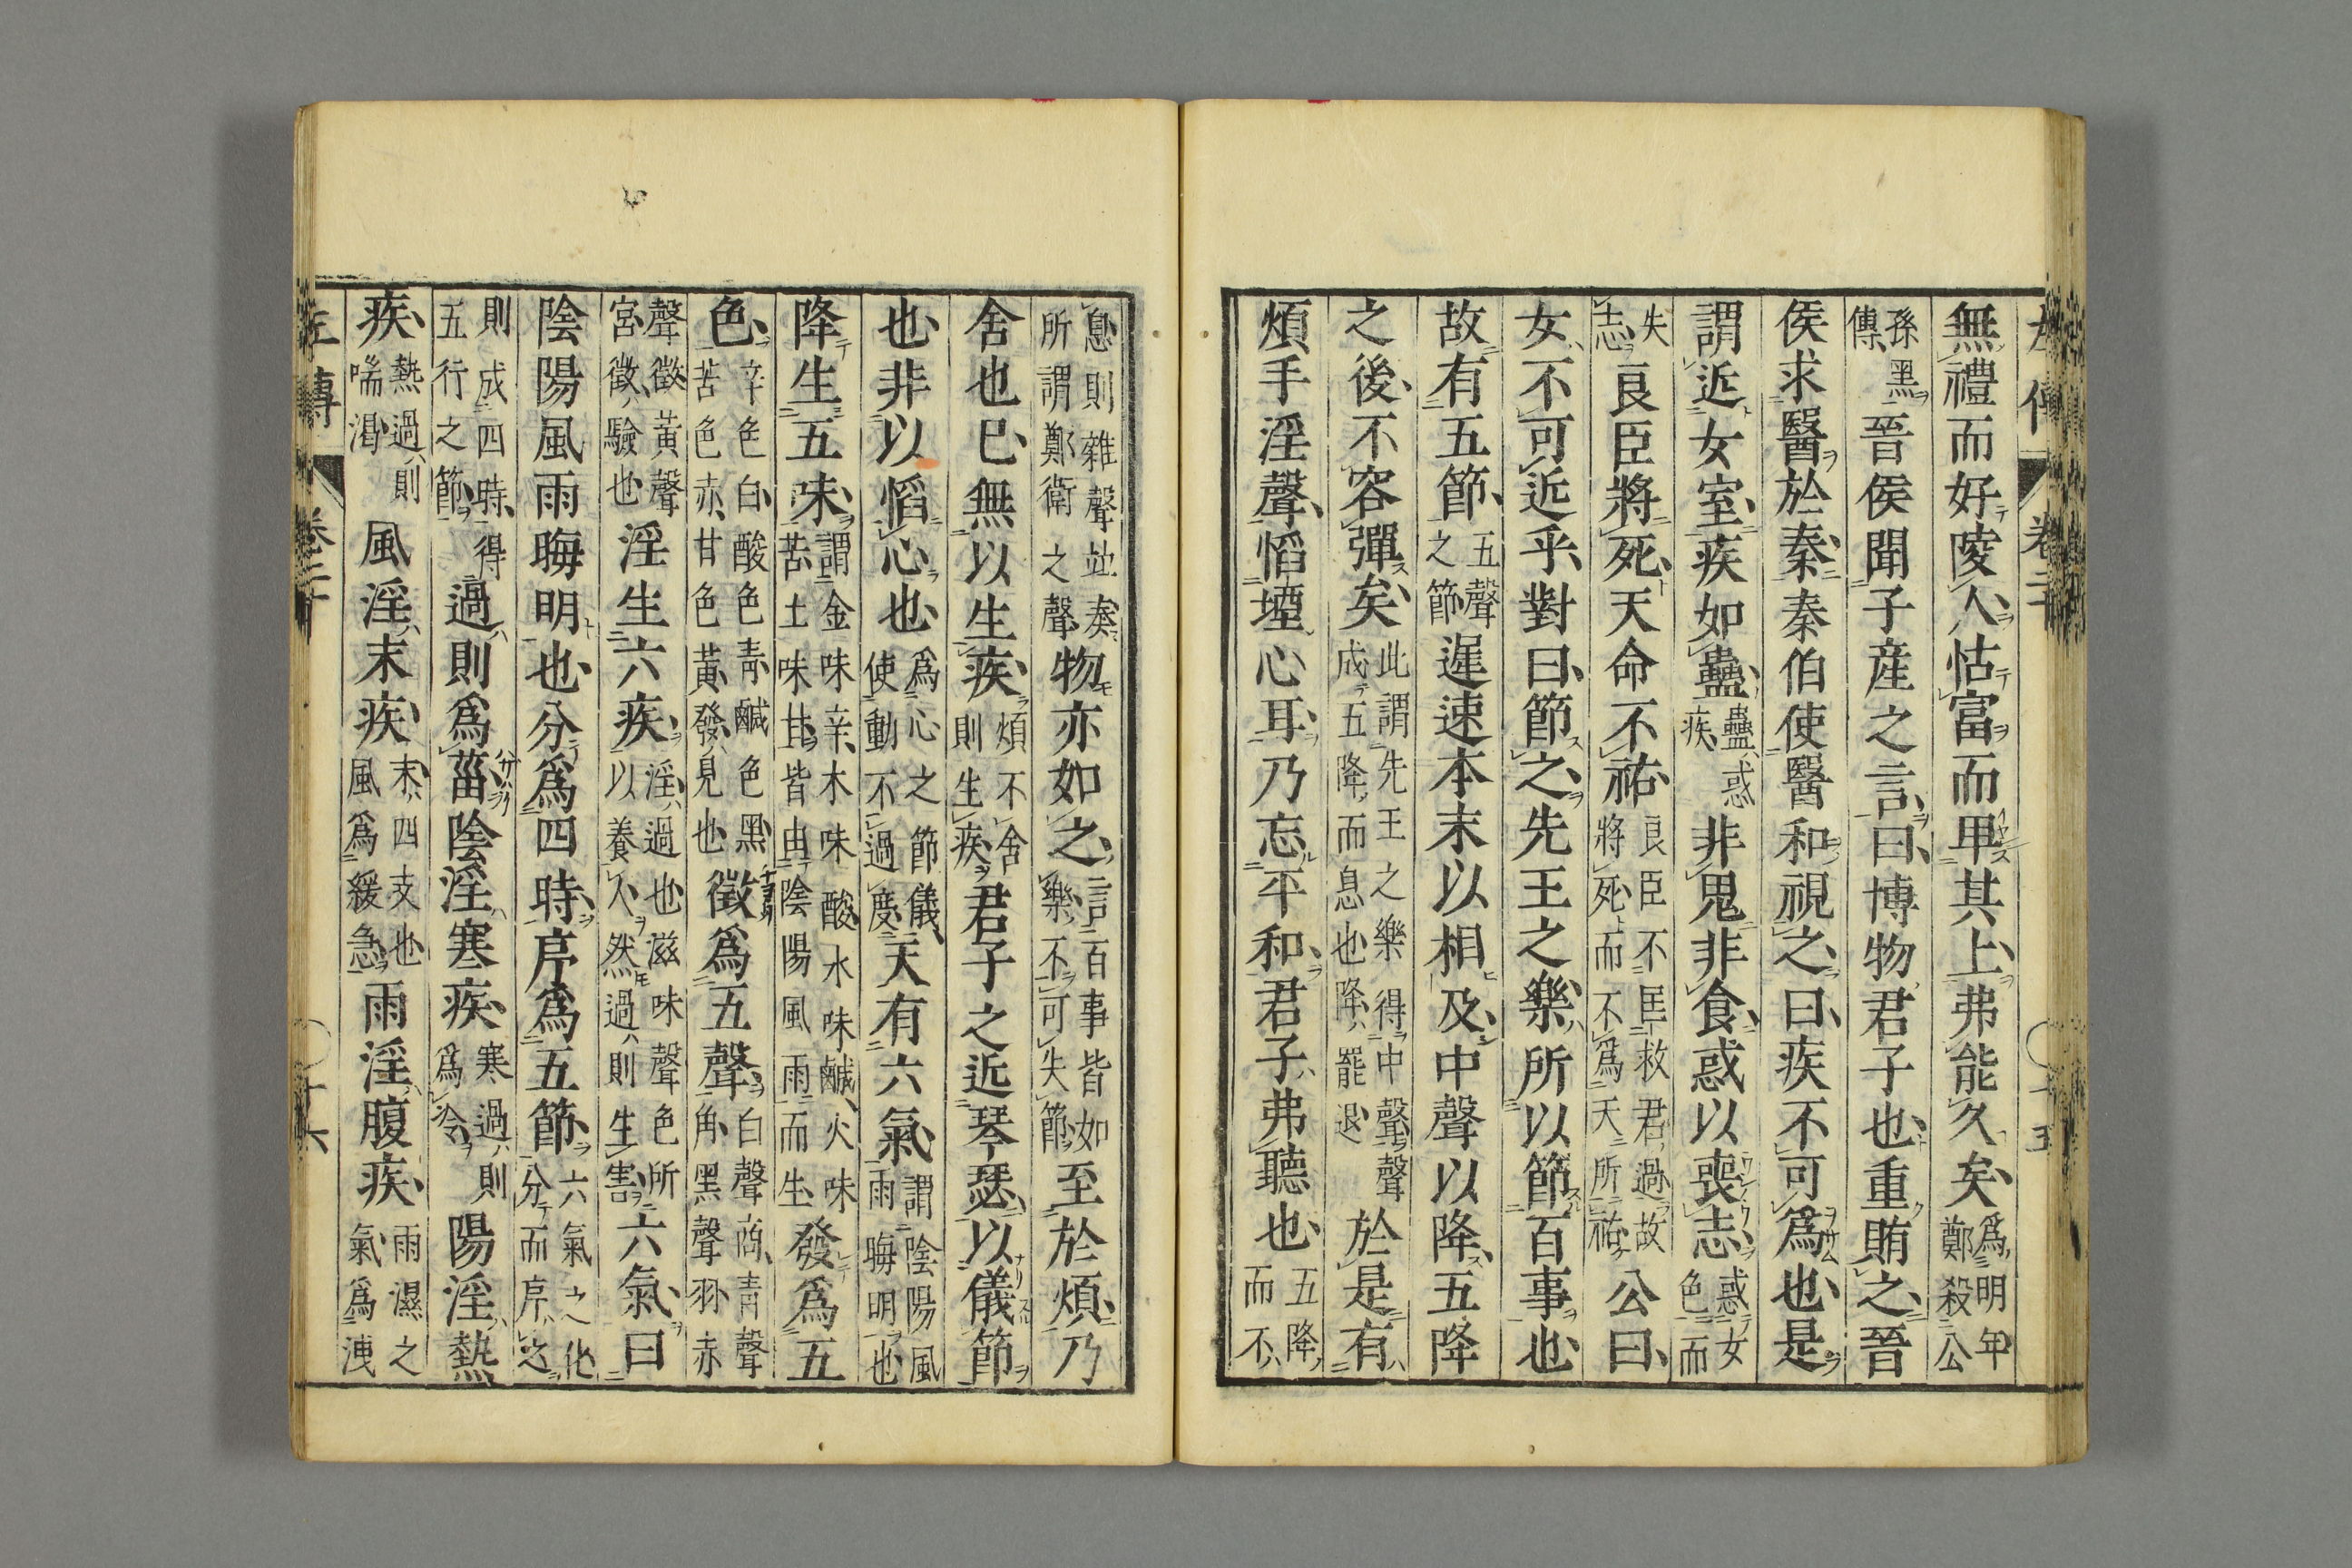 無禮而好陵人怙富而卑其上弗能久矣爲明年鄭殺公
孫黑傳晉侯聞子産之言曰博物君子也重賄之晉
侯求醫於秦秦伯使醫和視之曰疾不可爲也是
謂近女室疾如蠱蠱惑疾非鬼非食惑以喪志惑女色而
失志良臣將死天命不祐良臣不匡救君過故將死而不爲天所祐公曰
女不可近乎對曰節之先王之樂所以節百事也
故有五節五聲之節遲速本末以相及中聲以降五降
之後不容彈矣此謂先王之樂得中聲聲成五降而息也降罷退於是有
煩手淫聲慆堙心耳乃忘平和君子弗聽也五降而不
息則雜聲竝奏所謂鄭衛之聲物亦如之言百事皆如樂不可失節至於煩乃
舍也已無以生疾煩不舍則生疾君子之近琴瑟以儀節
也非以慆心也爲心之節儀使動不過度天有六氣謂陰陽風雨晦明也
降生五味謂金味辛木味酸水味鹹火味苦土味甘皆由陰陽風雨而生發爲五
色辛色白酸色青鹹色黑苦色赤甘色黃發見也徵爲五聲白聲商青聲角黑聲羽赤
聲徵黃聲宮徵驗也淫生六疾淫過也滋味聲色所以養人然過則生害六氣曰
陰陽風雨晦明也分爲四時序爲五節六氣之化分而序之
則成四時得五行之節過則爲菑陰淫寒疾寒過則爲冷陽淫熱
疾熱過則喘渴風淫末疾末四支也風爲緩急雨淫腹疾雨濕之氣爲洩
左傳 卷二十 十六